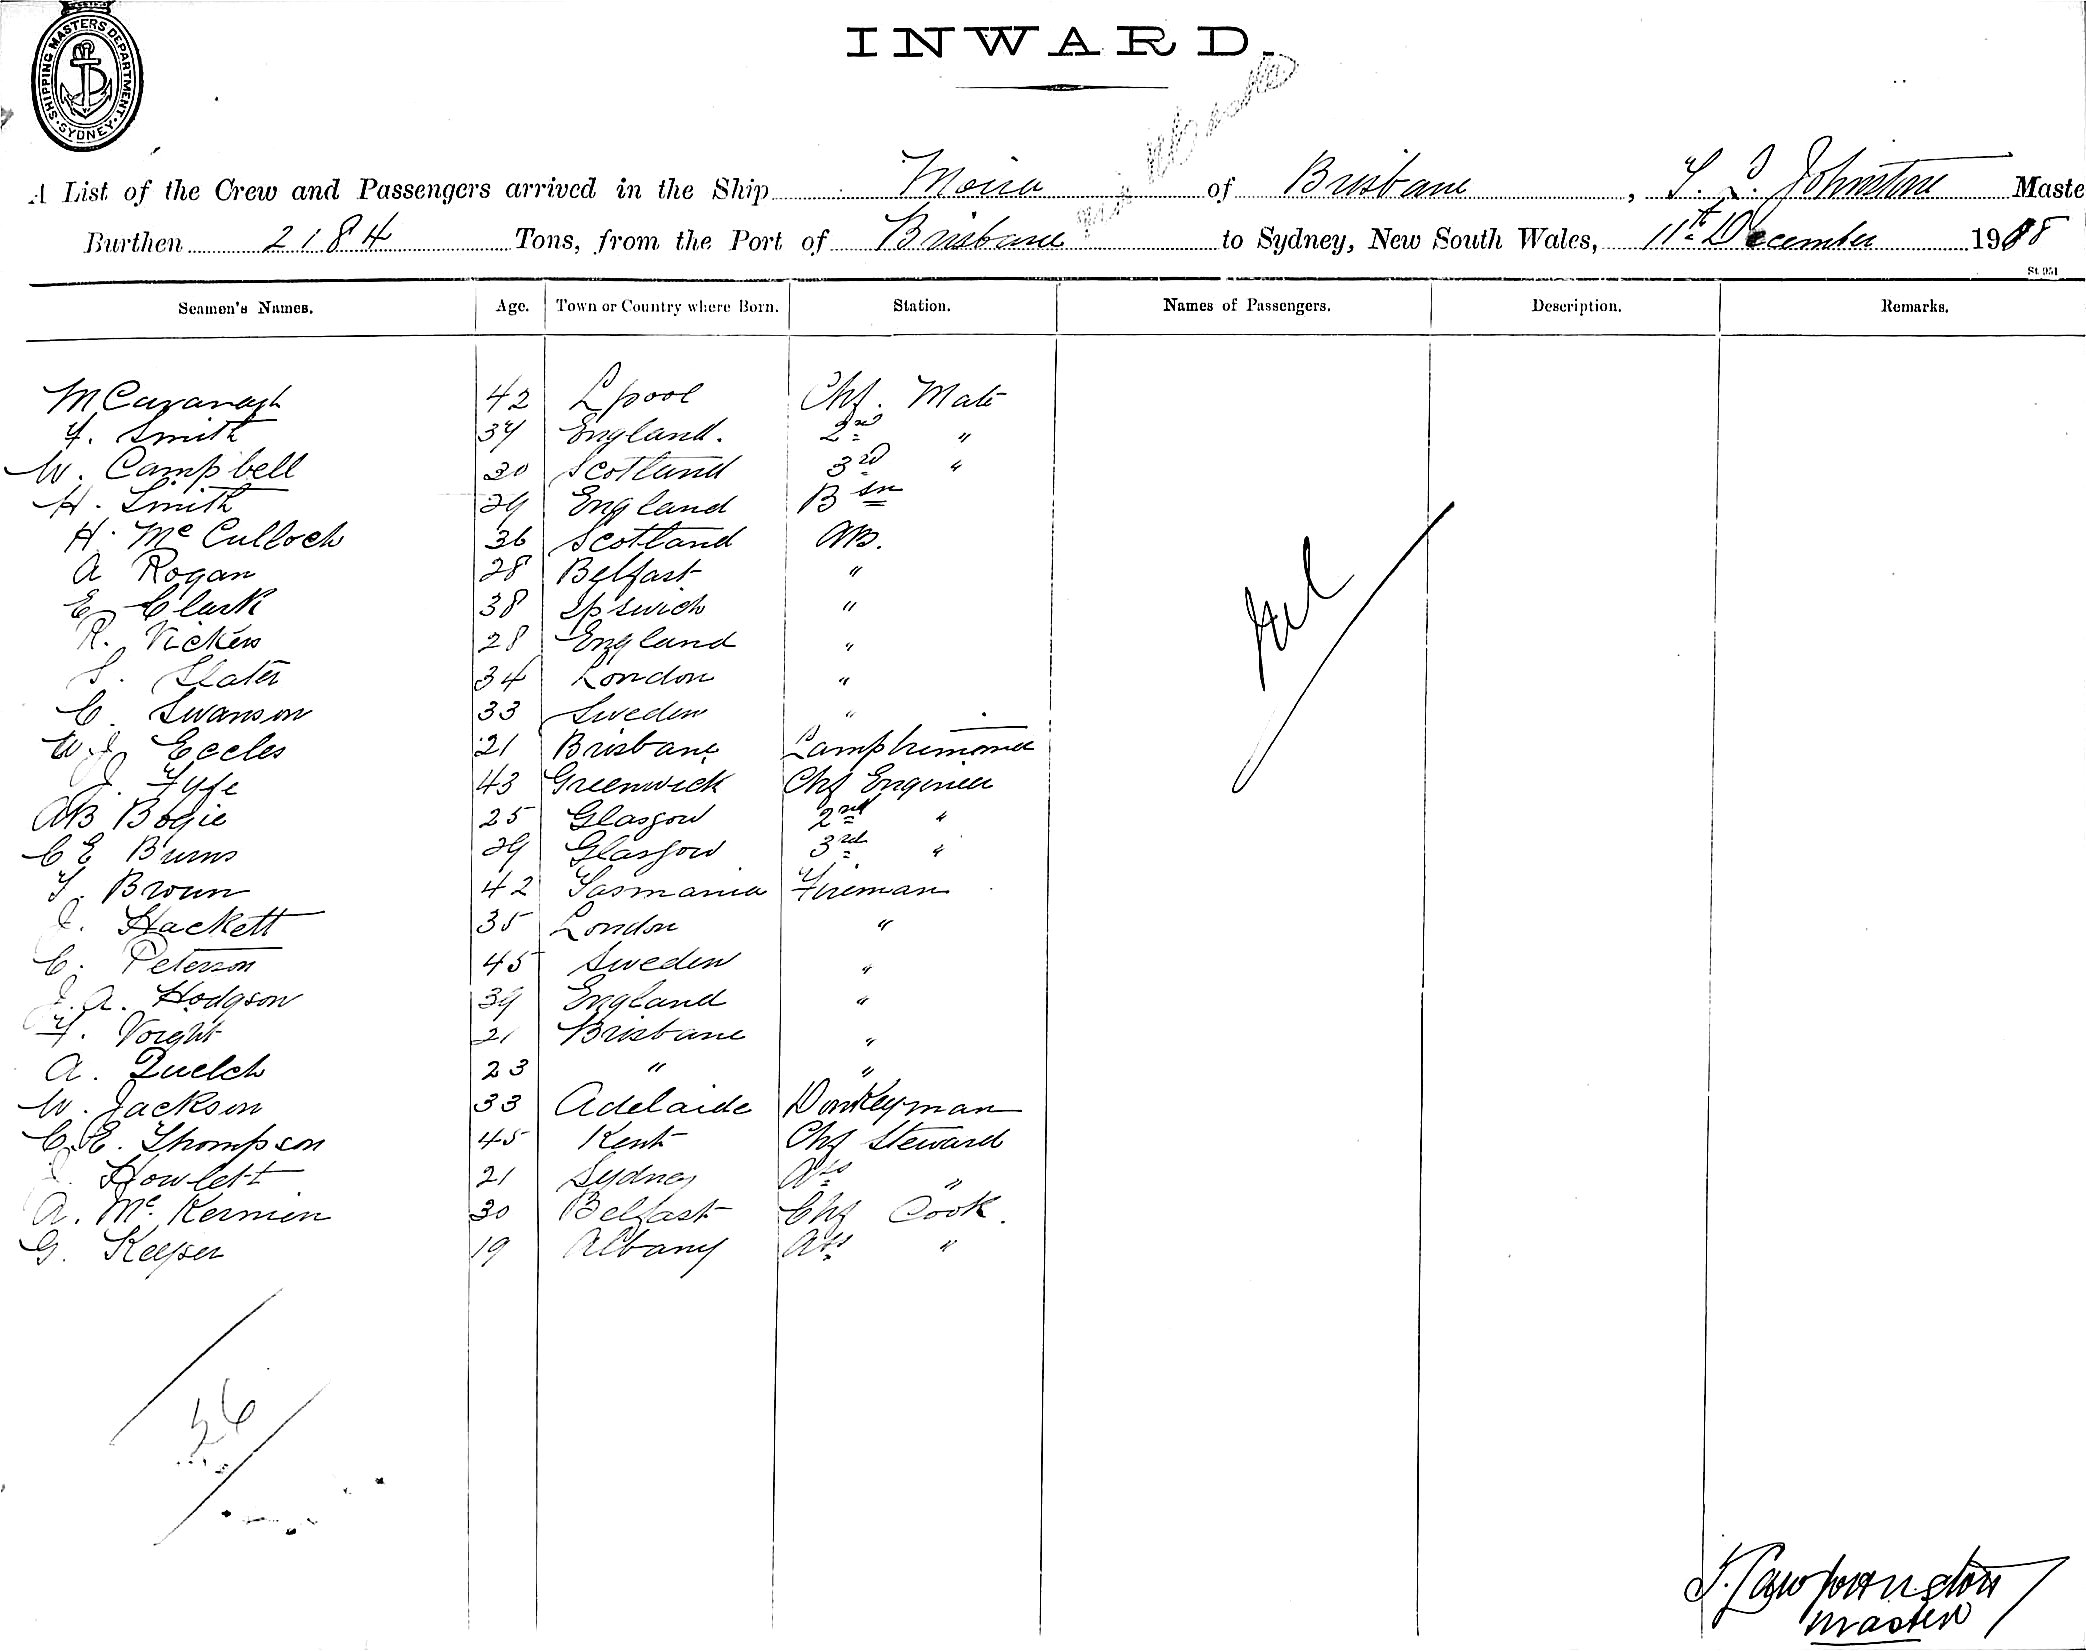 SHIPPING MASTERS DEPARTMENT. SYDNEY
INWARD.
A List of the Crew and Passengers arrived in the Ship Moira of Brisbane, Johnstone Maste
Burthen 2184 Tons, from the Port of Brisbane to Sydney, New South Wales, 11th December 1908
St 951
Seamen's Names. Age. Town or Country where Born. Station. Names of Passengers. Description. Remarks.
M Cavanagh 42 Lpool Chf. Mate
F. Smith 37 England. 2nd "
W. Campbell 30 Scotland 3rd "
H. Smith 29 England Bsn
H. Mc Culloch 36 Scotland AB.
A Rogan 28 Belfast "
E Clark 38 Ipswich "
R. Vickers 28 England "
S. Slater 34 London "
C. Swanson 33 Sweden "
W.J. Eccles 21 Brisbane Lamptrimmer
J. Fyfe 43 Greenwick Chf Engineer
AB Bogie 25 Glasgow 2nd "
C E Burns 29 Glasgow 3rd "
T. Brown 42 Tasmania Fireman
J. Hackett 35 London "
C. Peterson 45 Sweden "
J. A. Hodgson 39 England "
F. Voight 21 Brisbane "
A. Quelch 23 " "
W. Jackson 33 Adelaide Donkeyman
C.E. Thompson 45 Kent Chf Steward
Howlett 21 Sydney Ass "
A. Mc Kernien 30 Belfast Chf Cook.
G. Keeper 19 Albany Ass "
Nil
26
Master